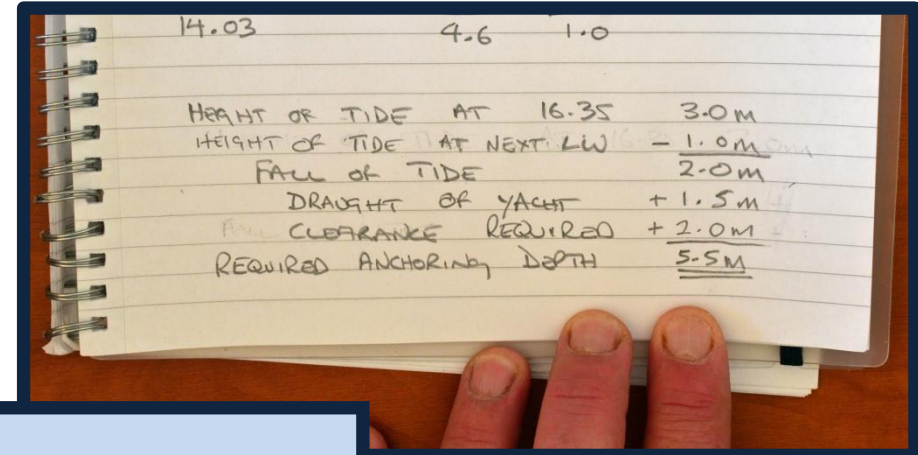 14.03 4.6 1.0
HEIGHT OF TIDE AT 16.35 3.0M
HEIGHT OF TIDE AT NEXT LW - 1.0M
FALL OF TIDE 2.0M
DRAUGHT OF YACHT + 1.5M
CLEARANCE REQUIRED + 2.0M
REQUIRED ANCHORING DEPTH 5.5M